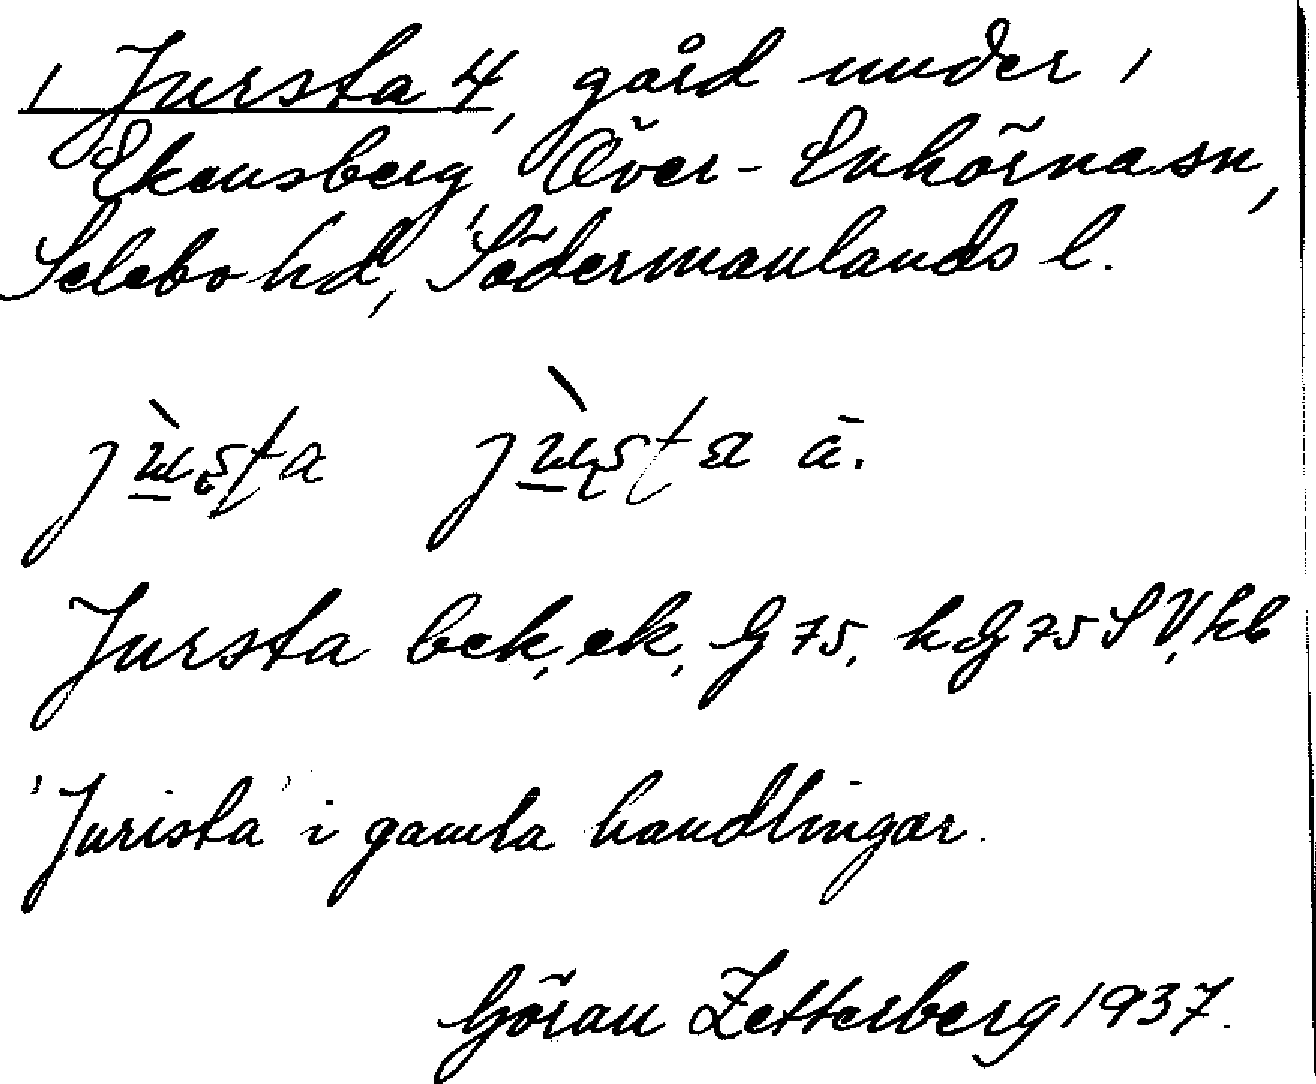 Jursta 4, gård under
Ekensberg, Över-Enhörna sn,
Selebo hd, Södermanlands l.
ä.
Jursta bek, ek, G 75, h G 75 SV, kb
'Jurista' i gamla handlingar.
Göran Zetterberg 1937.